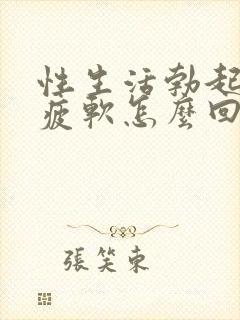 性生活勃起
疲軟怎麼回
張笑東